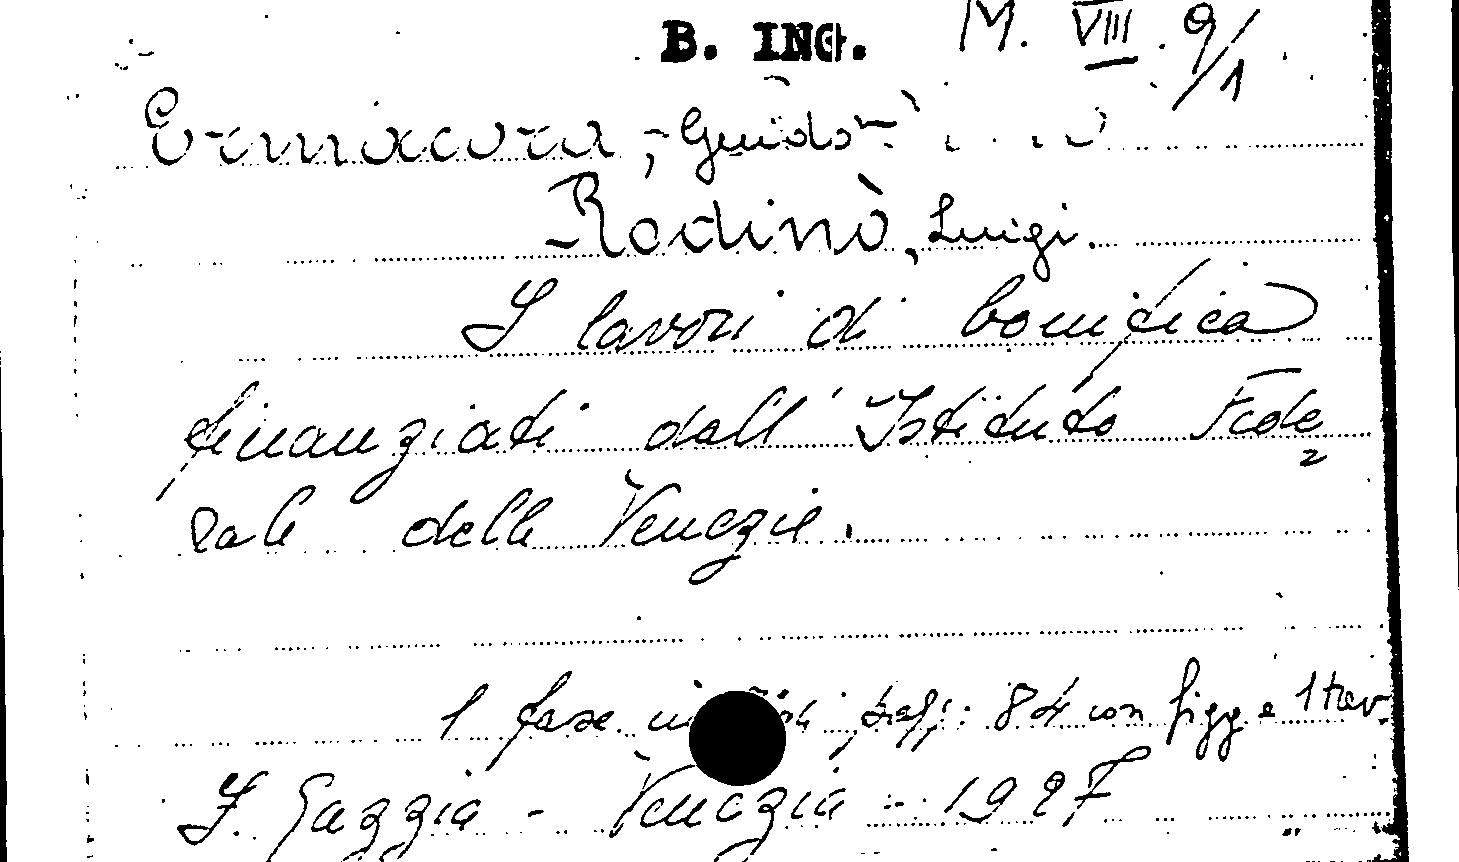 B. ING. M. VIII. 9/1
Ermacora, Guido
Rodinò, Luigi.
I lavori di bonifica
finanziati dall'Istituto Fede
rale delle Venezie.
1 fasc. in pagg: 84 con figg e 1 tav.
I. Gazzia - Venezia - 1927